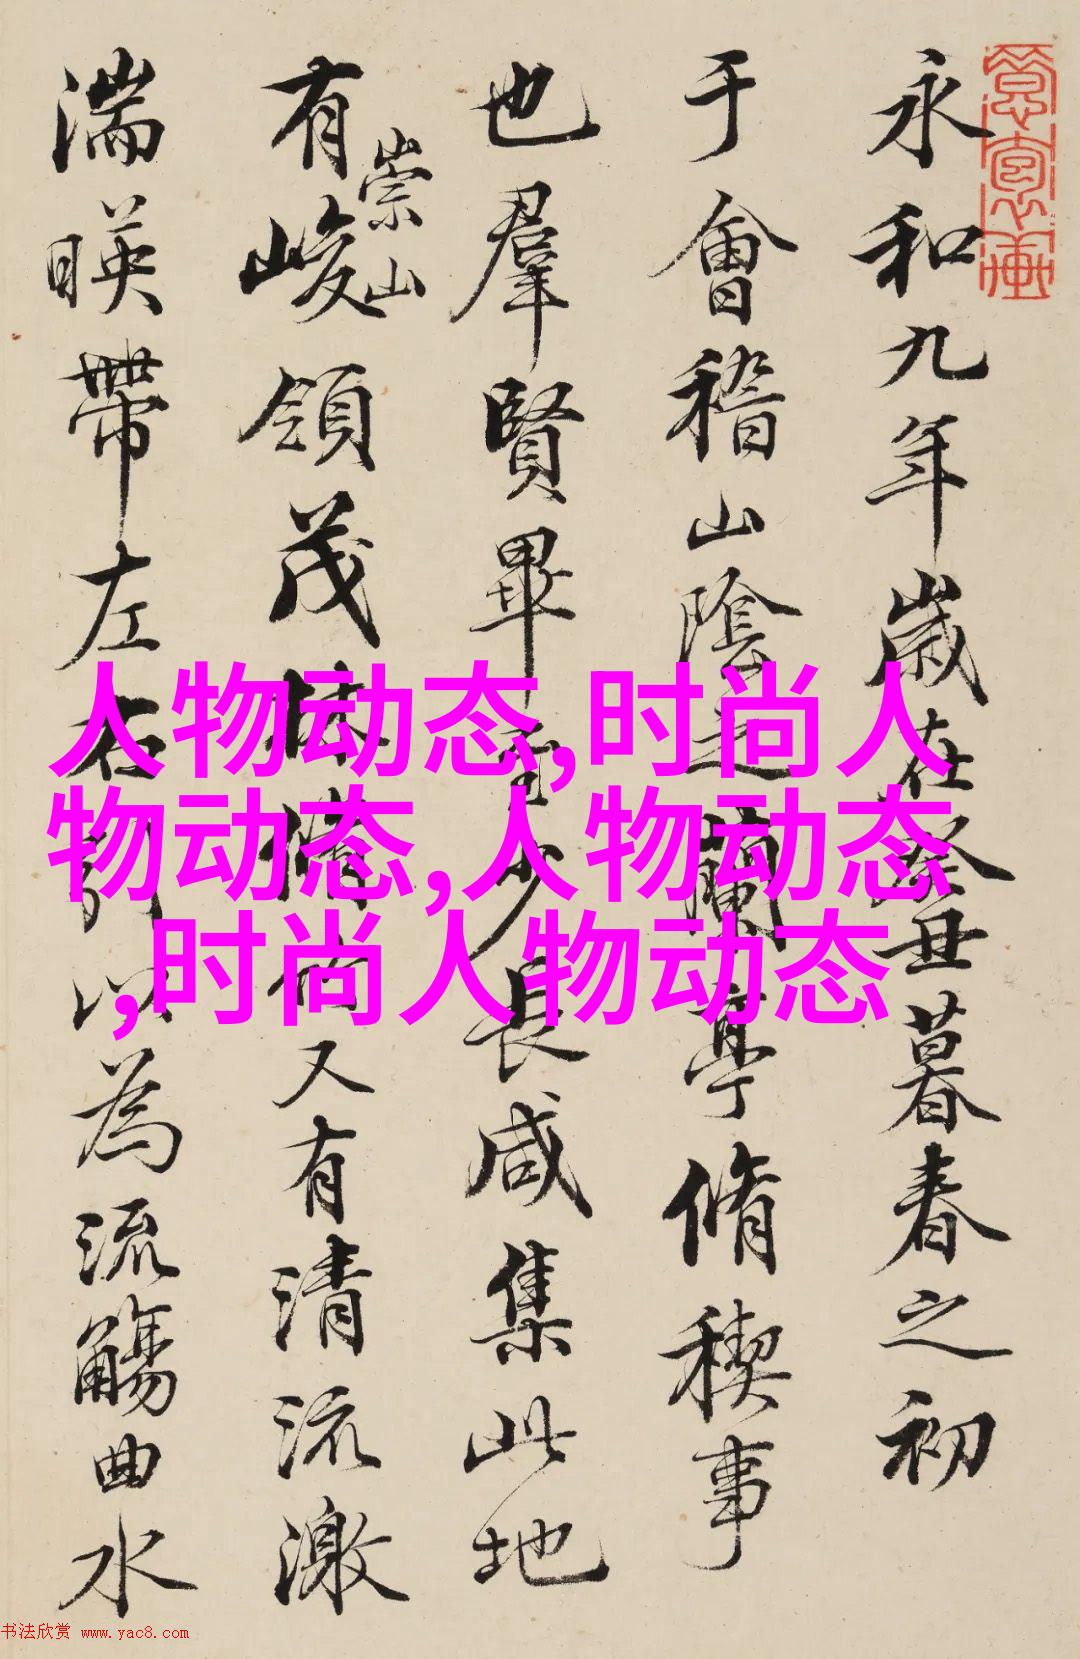 永和九年歲在癸丑暮春之初
于會稽山陰之蘭亭脩稧事
也羣賢畢至少長咸集此地
有崇山峻領茂林脩竹又有清流激
湍暎帶左右引以為流觴曲水
人物动态,时尚人
物动态,人物动态
,时尚人物动态
书法欣赏 www.yac8.com